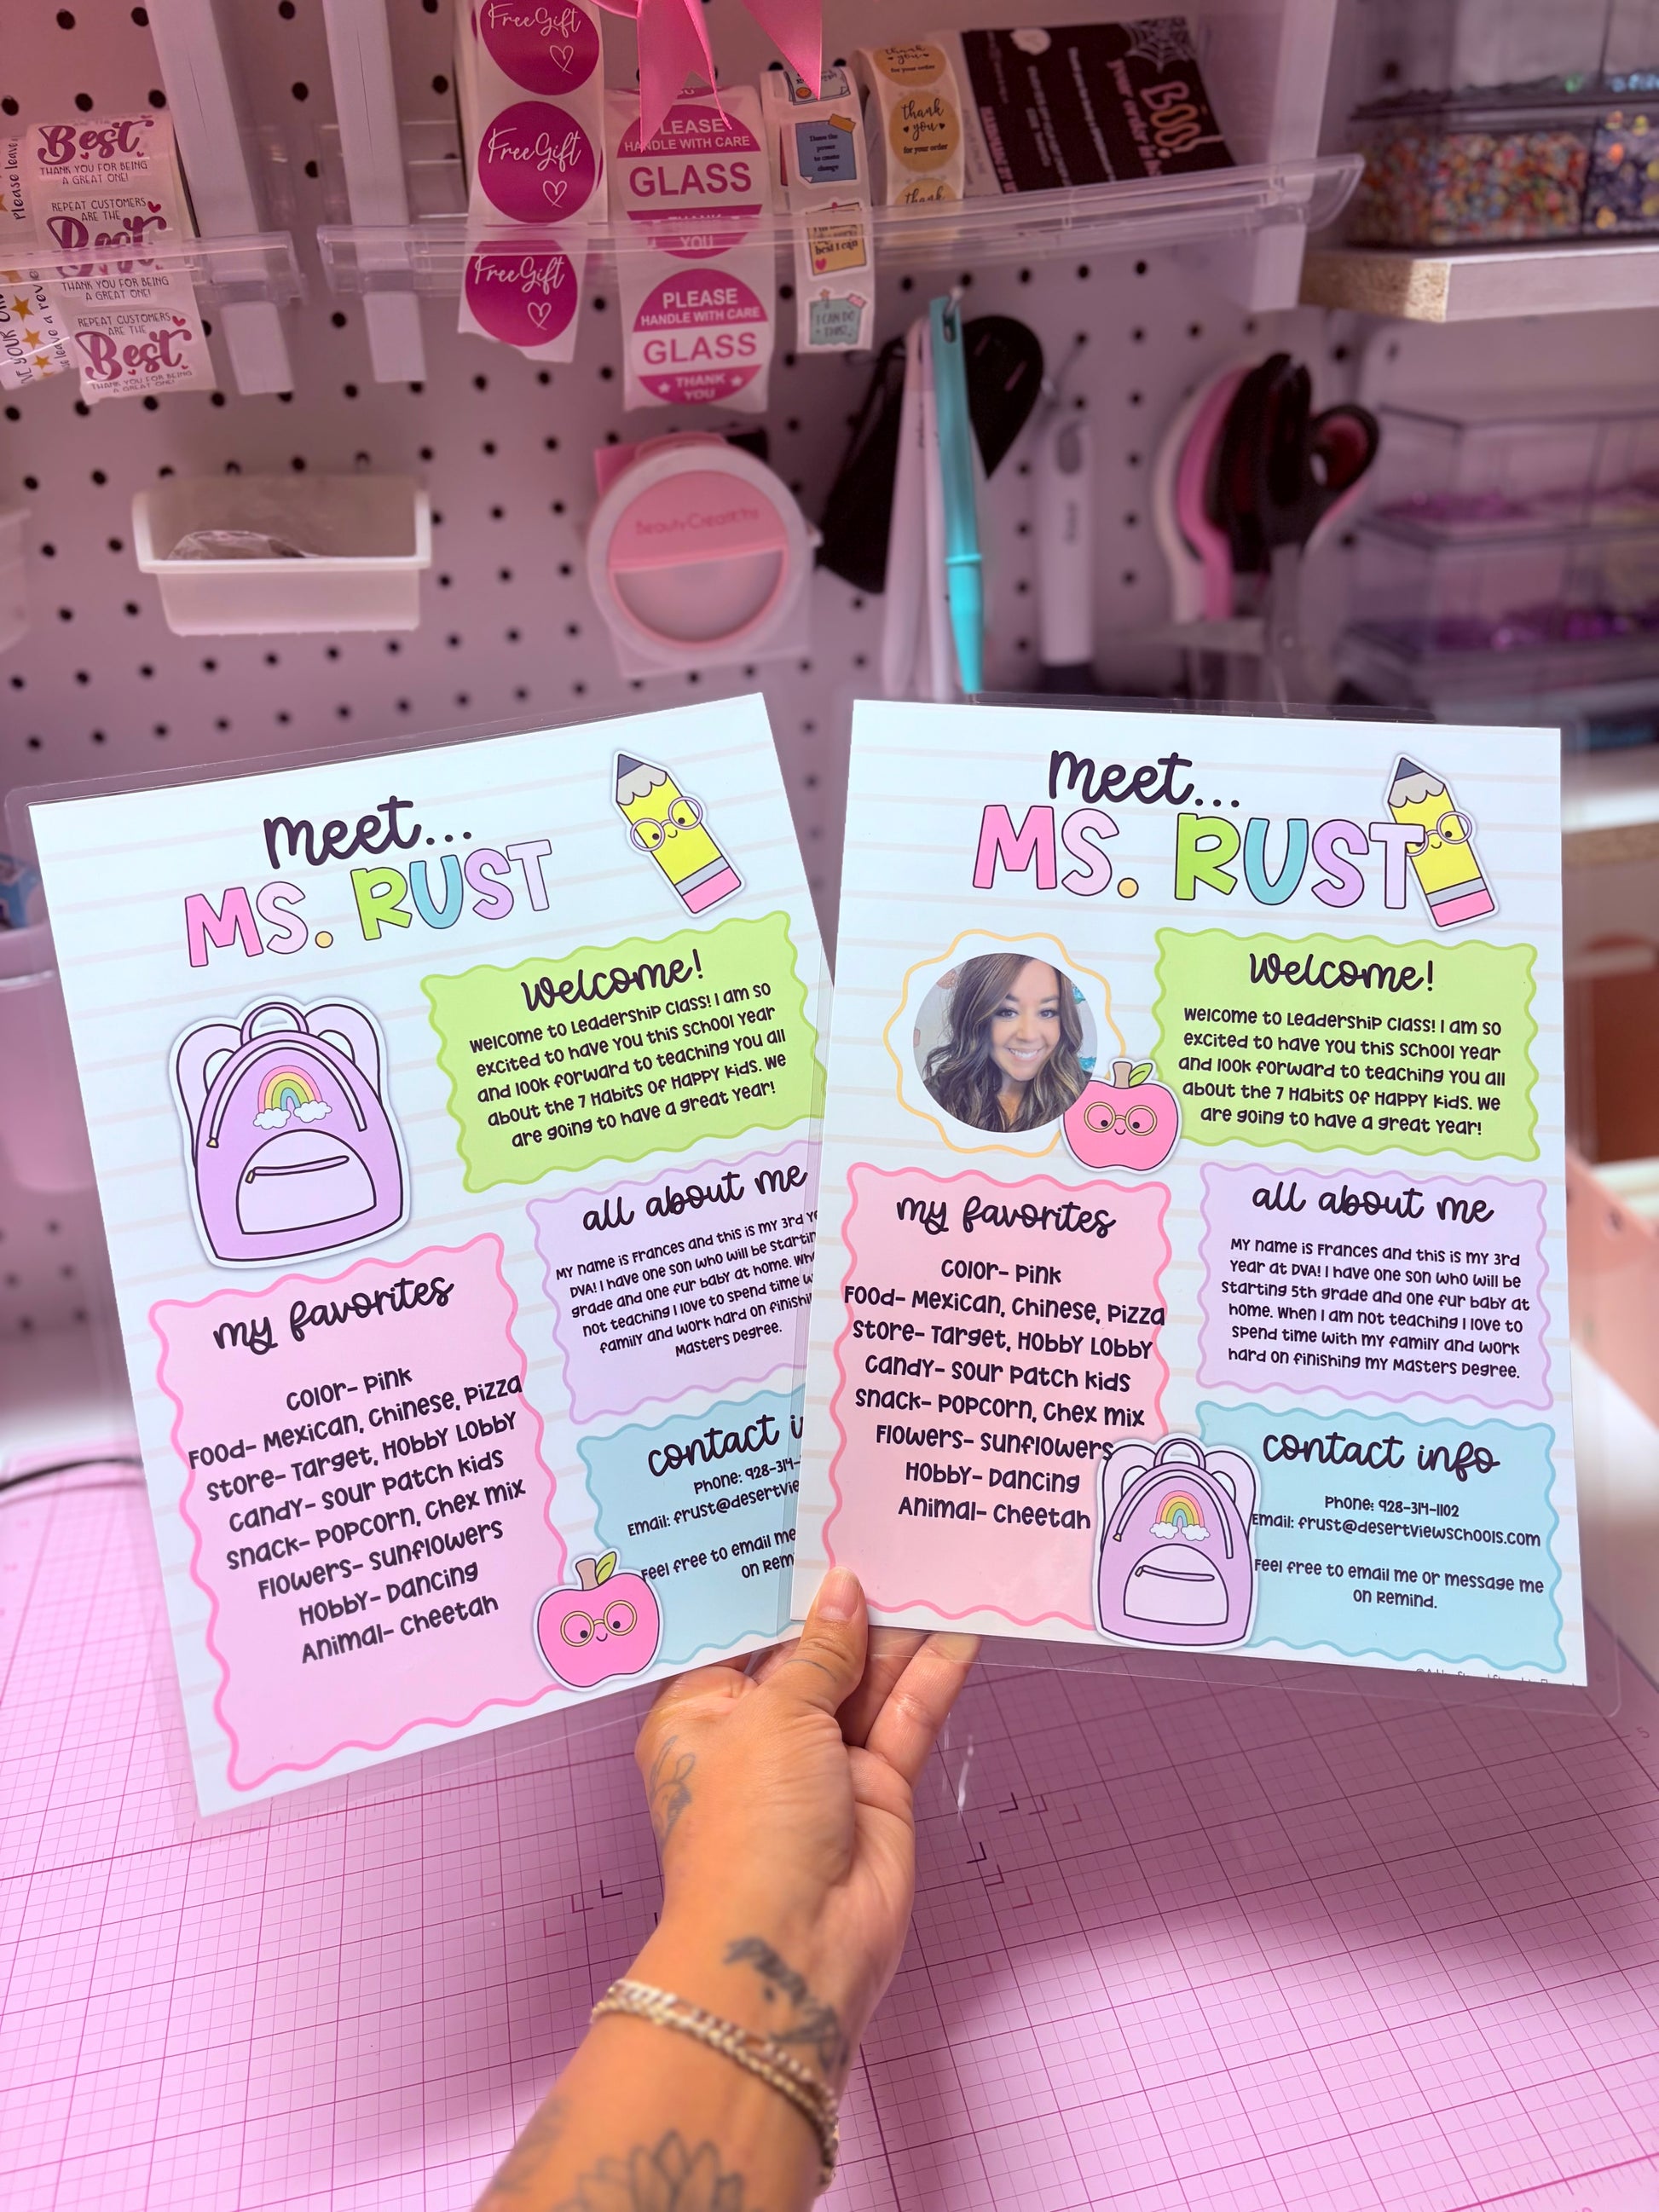 Please leave
Best
THANK YOU FOR BEING
A GREAT ONE!
REPEAT CUSTOMERS
ARE THE
Best
THANK YOU FOR BEING
A GREAT ONE!
REPEAT CUSTOMERS
ARE THE
Best
THANK YOU FOR BEING
A GREAT ONE!
Free Gift
Free Gift
Free Gift
LEASE
HANDLE WITH CARE
GLASS
YOU
PLEASE
HANDLE WITH CARE
GLASS
THANK
YOU
best I can
I CAN DO
thank
you
for your order
thank
Boo!
your order is
BeautyCreations
meet...
MS. RUST
welcome!
Welcome to Leadership Class! I am so
excited to have you this school year
and look forward to teaching you all
about the 7 Habits of Happy Kids. We
are going to have a great year!
all about me
My name is Frances and this is my 3rd Ye
DVA! I have one son who will be startin
grade and one fur baby at home. Wh
not teaching I love to spend time w
family and work hard on finishi
Masters Degree.
my favorites
Color- Pink
Food- Mexican, Chinese, Pizza
Store- Target, Hobby Lobby
Candy- Sour Patch Kids
Snack- Popcorn, Chex Mix
Flowers- Sunflowers
Hobby- Dancing
Animal- Cheetah
contact i
Phone: 928-314-
Email: frust@desertvie
Feel free to email me
on Rem
meet...
MS. RUST
welcome!
Welcome to Leadership Class! I am so
excited to have you this school year
and look forward to teaching you all
about the 7 Habits of Happy Kids. We
are going to have a great year!
my favorites
Color- Pink
Food- Mexican, Chinese, Pizza
Store- Target, Hobby Lobby
Candy- Sour Patch Kids
Snack- Popcorn, Chex Mix
Flowers- Sunflowers
Hobby- Dancing
Animal- Cheetah
all about me
My name is Frances and this is my 3rd
year at DVA! I have one son who will be
starting 5th grade and one fur baby at
home. When I am not teaching I love to
spend time with my family and work
hard on finishing my Masters Degree.
contact info
Phone: 928-314-1102
Email: frust@desertviewschools.com
Feel free to email me or message me
on Remind.